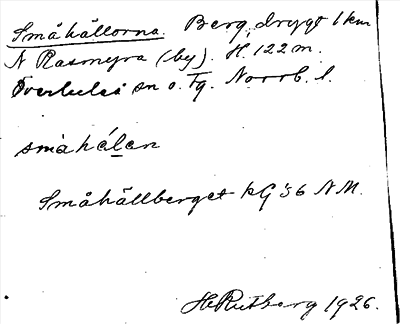 Småhällorna. Berg, drygt 1 km
N Rasmyra (by). H. 122 m.
Överluleå sn o. Tg. Norrb. l.
småhálan
Småhällberget kG 36 N.M.
H Rutberg 1926.